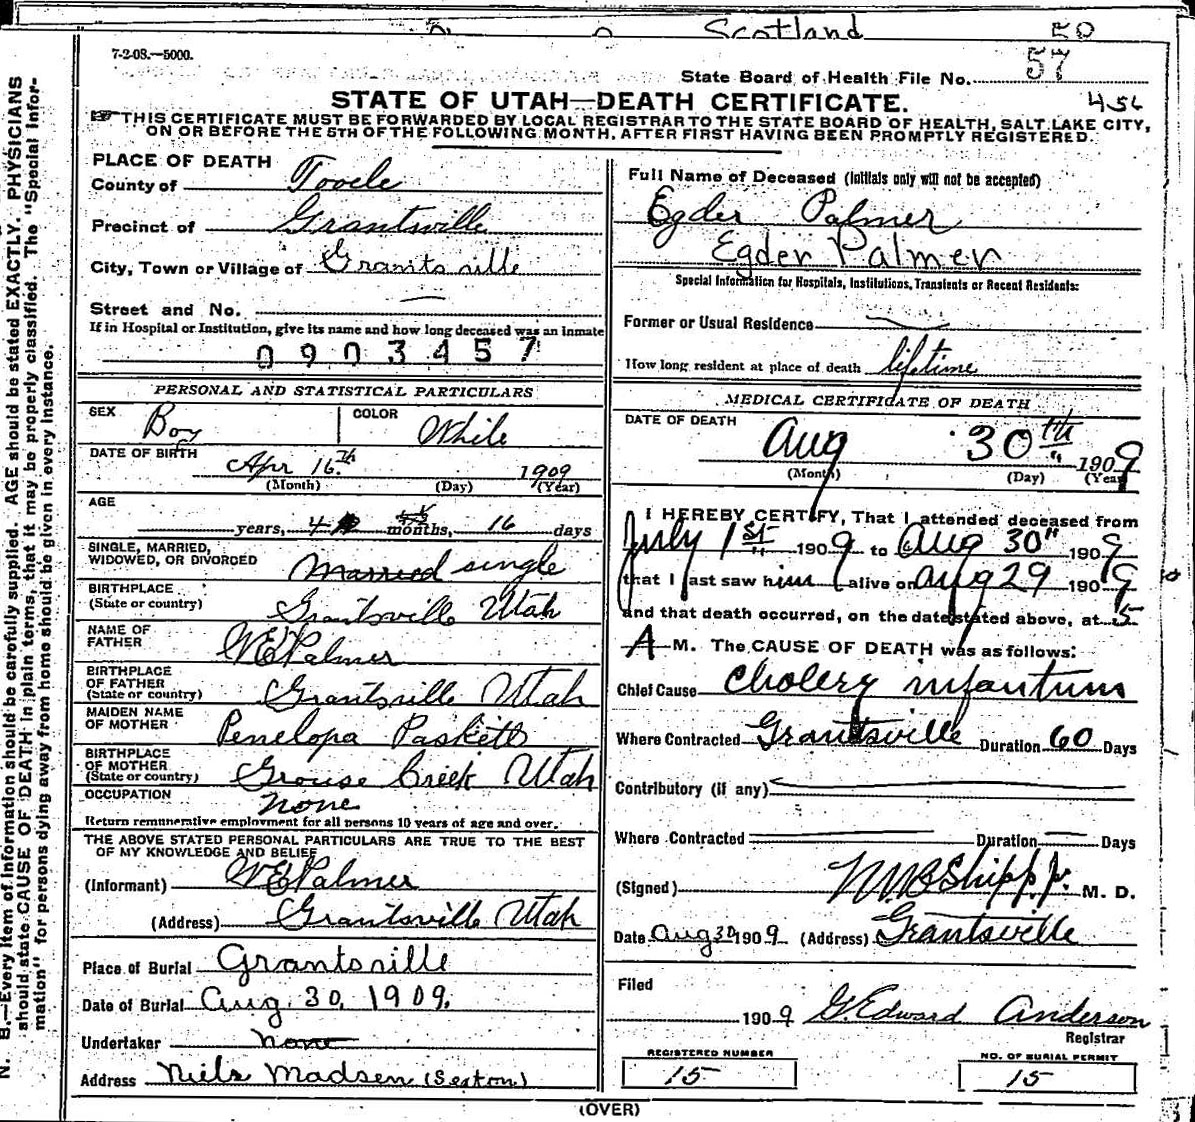 Scotland 50
7-2-08.—5000.
State Board of Health File No. 57
STATE OF UTAH—DEATH CERTIFICATE. 456
THIS CERTIFICATE MUST BE FORWARDED BY LOCAL REGISTRAR TO THE STATE BOARD OF HEALTH, SALT LAKE CITY,
ON OR BEFORE THE 5TH OF THE FOLLOWING MONTH, AFTER FIRST HAVING BEEN PROMPTLY REGISTERED.
PLACE OF DEATH
County of Tooele
Precinct of Grantsville
City, Town or Village of Grantsville
Street and No.
If in Hospital or Institution, give its name and how long deceased was an inmate
0903457
PERSONAL AND STATISTICAL PARTICULARS
SEX Boy COLOR White
DATE OF BIRTH Apr 16th 1909
(Month) (Day) (Year)
AGE
years, 4 months, 16 days
SINGLE, MARRIED,
WIDOWED, OR DIVORCED Married single
BIRTHPLACE
(State or country) Grantsville Utah
NAME OF
FATHER W E Palmer
BIRTHPLACE
OF FATHER
(State or country) Grantsville Utah
MAIDEN NAME
OF MOTHER Penelopa Paskett
BIRTHPLACE
OF MOTHER
(State or country) Grouse Creek Utah
OCCUPATION none
Return remunerative employment for all persons 10 years of age and over.
THE ABOVE STATED PERSONAL PARTICULARS ARE TRUE TO THE BEST
OF MY KNOWLEDGE AND BELIEF
(Informant) W E Palmer
(Address) Grantsville Utah
Place of Burial Grantsville
Date of Burial Aug. 30, 1909.
Undertaker none
Address Niels Madsen (Sexton)
Full Name of Deceased (Initials only will not be accepted)
Egder Palmer
Egder Palmer
Special Information for Hospitals, Institutions, Transients or Recent Residents:
Former or Usual Residence
How long resident at place of death lifetime
MEDICAL CERTIFICATE OF DEATH
DATE OF DEATH
Aug 30th 1909
(Month) (Day) (Year)
I HEREBY CERTIFY, That I attended deceased from
July 1st 1909 to Aug 30" 1909
that I last saw him alive on Aug 29 1909
and that death occurred, on the date stated above, at 5
A M. The CAUSE OF DEATH was as follows:
Chief Cause Cholery infantums
Where Contracted Grantsville Duration 60 Days
Contributory (if any)
Where Contracted Duration Days
(Signed) Shipp Jr. M. D.
Date Aug 30 1909 (Address) Grantsville
Filed
1909 G. Edward Anderson
Registrar
REGISTERED NUMBER
15
NO. OF BURIAL PERMIT
15
(OVER)
N. B.—Every item of information should be carefully supplied. AGE should be stated EXACTLY. PHYSICIANS
should state CAUSE OF DEATH in plain terms, that it may be properly classified. The "Special Infor-
mation" for persons dying away from home should be given in every instance.